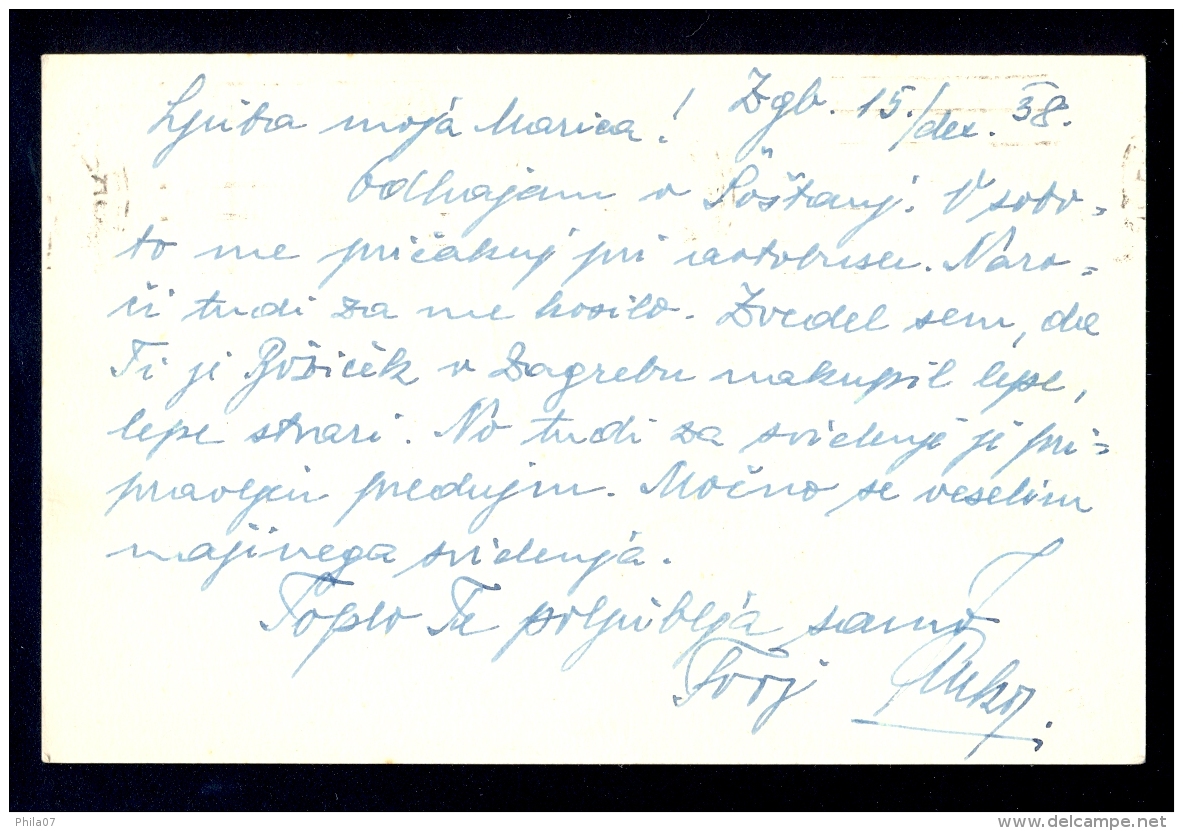 Ljuba moja Marica! Zgb. 15./dez. 38.
odhajam v Šoštanj. V sobo-
to me pričakuj pri avtobusu. Naro=
či tudi za me kosilo. Zvedel sem, da
Ti je Božiček v Zagrebu nakupil lepe,
lepe stvari. No tudi za svidenje je pri=
pravljen predujm. Močno se veselim
najinega svidenja.
Toplo Te poljublja samo
Tvoj
Phila07
delcampe.net